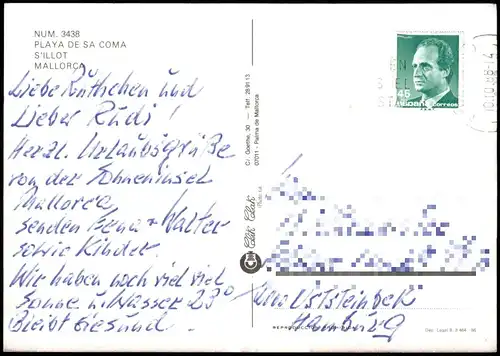 NUM. 3438
PLAYA DE SA COMA
S'ILLOT
MALLORCA
Liebe Rüthchen und
Lieber Rudi!
Herzl. Urlaubsgrüße
von der Sonneninsel
Mallorca
senden Irena + Walter
sowie Kinder.
Wir haben noch viel viel
Sonne u. Wasser 23°
Bleibt Gesund
C/. Goethe, 30 — Telf. 28 91 13
07011 - Palma de Mallorca
Clik Clak
45
ESPAÑA correos
Hamburg